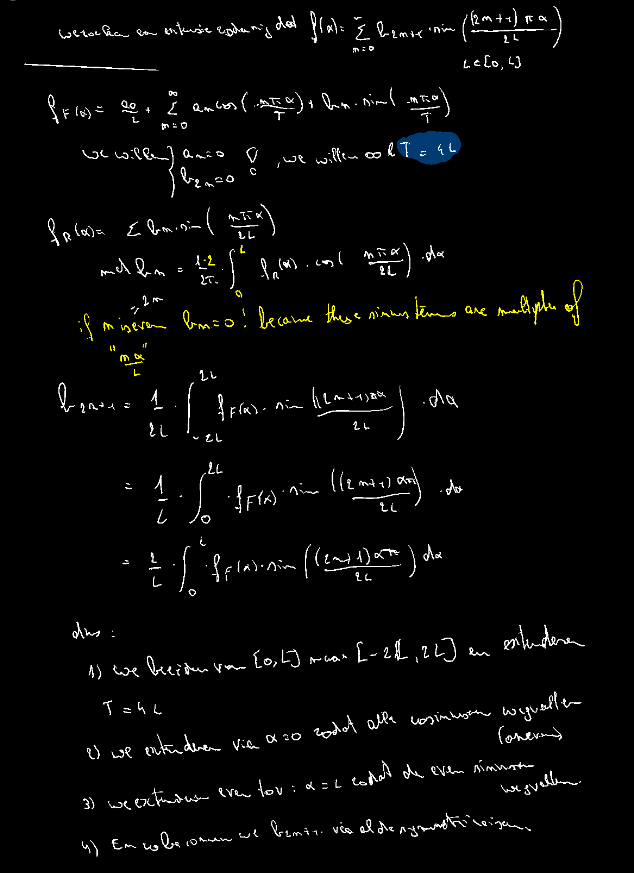 we zoeken een extensie zodanig dat f(x) = Σ_{n=0}^{∞} b_{2n+1} · sin((2n+1)πx / 2L)
x ∈ [0, L]
f_F(x) = a_0/2 + Σ_{n=0}^{∞} a_n cos(nπx/T) + b_n · sin(nπx/T)
we willen a_n = 0, we willen T = 4L
b_{2n} = 0
f_F(x) = Σ b_n · sin(nπx/2L)
met b_n = 1·2/2L · ∫_0^L f_F(x) · cos(nπx/2L) · dx
= 2n
if n is even b_n = 0! because these sinus terms are multiples of
"nx/L"
b_{2n+1} = 1/2L · ∫_{-2L}^{2L} f_F(x) · sin((2n+1)πx / 2L) · dx
= 1/L · ∫_0^{2L} · f_F(x) · sin((2n+1)xπ / 2L) · dx
= 2/L · ∫_0^L · f_F(x) · sin((2n+1)xπ / 2L) dx
dus :
1) we breiden van [0,L] naar [-2L, 2L] en extenderen
T = 4L
2) we extenderen via x=0 zodat alle cosinussen wegvallen
(oneven)
3) we extenderen even tov : x = L zodat de even sinussen
wegvallen.
4) En zo bekomen we b_{2n+1} via al de symmetrieeigen.